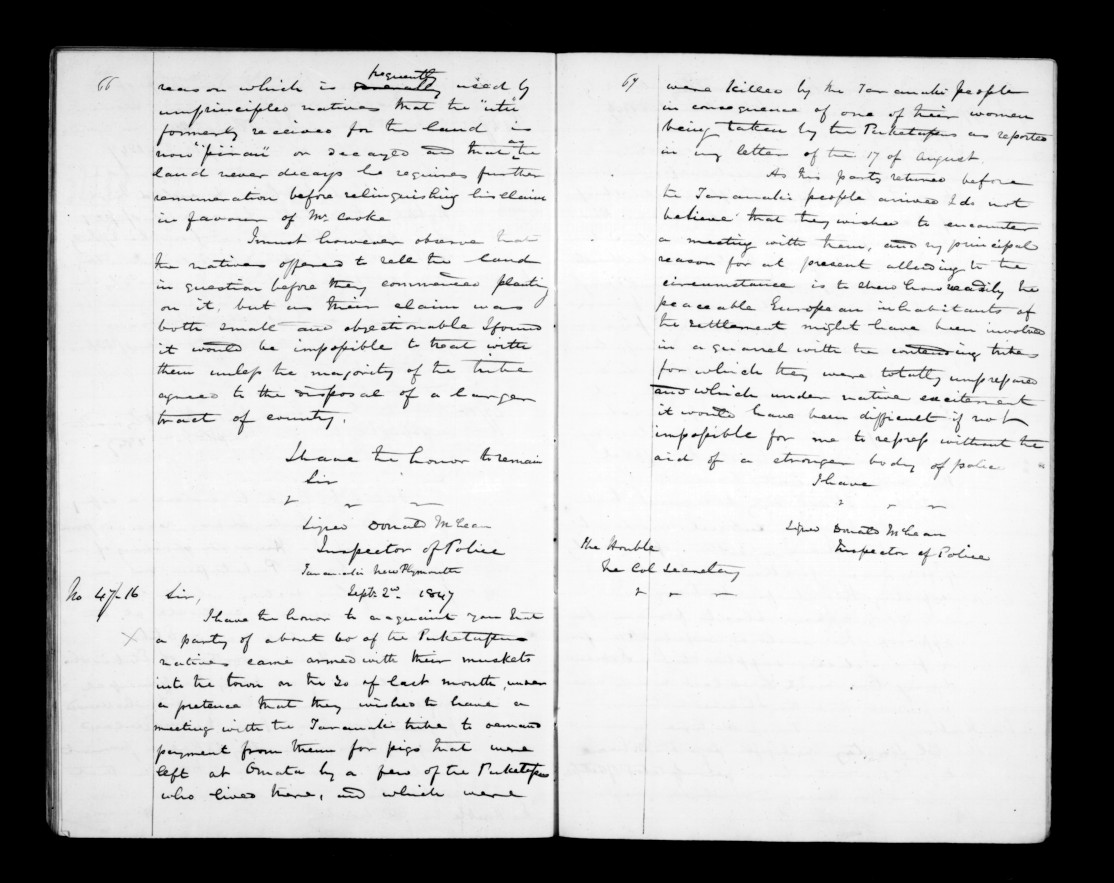 66
reason which is generally frequently used by
unprincipled natives that the "utu"
formerly received for the land is
now "pirau" or decayed and that as the
land never decays he requires further
remuneration before relinquishing his claim
in favour of Mr. Cooke
I must however observe that
the natives offered to sell the land
in question before they commenced planting
on it, but as their claim was
both small and objectionable I found
it would be impossible to treat with
them unless the majority of the tribe
agreed to the disposal of a larger
tract of country.
I have the honor to remain
Sir
Signed Donald McLean
Inspector of Police
Taranaki New Plymouth
No 47-16 Sir, Septr 2nd 1847
I have the honor to acquaint you that
X a party of about 60 of the Puketupu
natives came armed with their muskets
into the town on the 20 of last month, under
a pretence that they wished to have a
meeting with the Taranaki tribe to demand
payment from them for pigs that were
left at Omata by a few of the Puketupu
who lived there, and which were
67
were killed by the Taranaki people
in consequence of one of their women
being taken by the Puketupu as reported
in my letter of the 17 of August.
As this party returned before
the Taranaki people arrived I do not
believe that they wished to encounter
a meeting with them, and my principal
reason for at present alluding to the
circumstance is to shew how readily the
peaceable European inhabitants of
the settlement might have been involved
in a quarrel with the contending tribes
for which they were totally unprepared
and which under native excitement
it would have been difficult if not
impossible for me to repress without the
aid of a stronger body of police
I have
Signed Donald McLean
Inspector of Police
The Honble
The Col Secretary